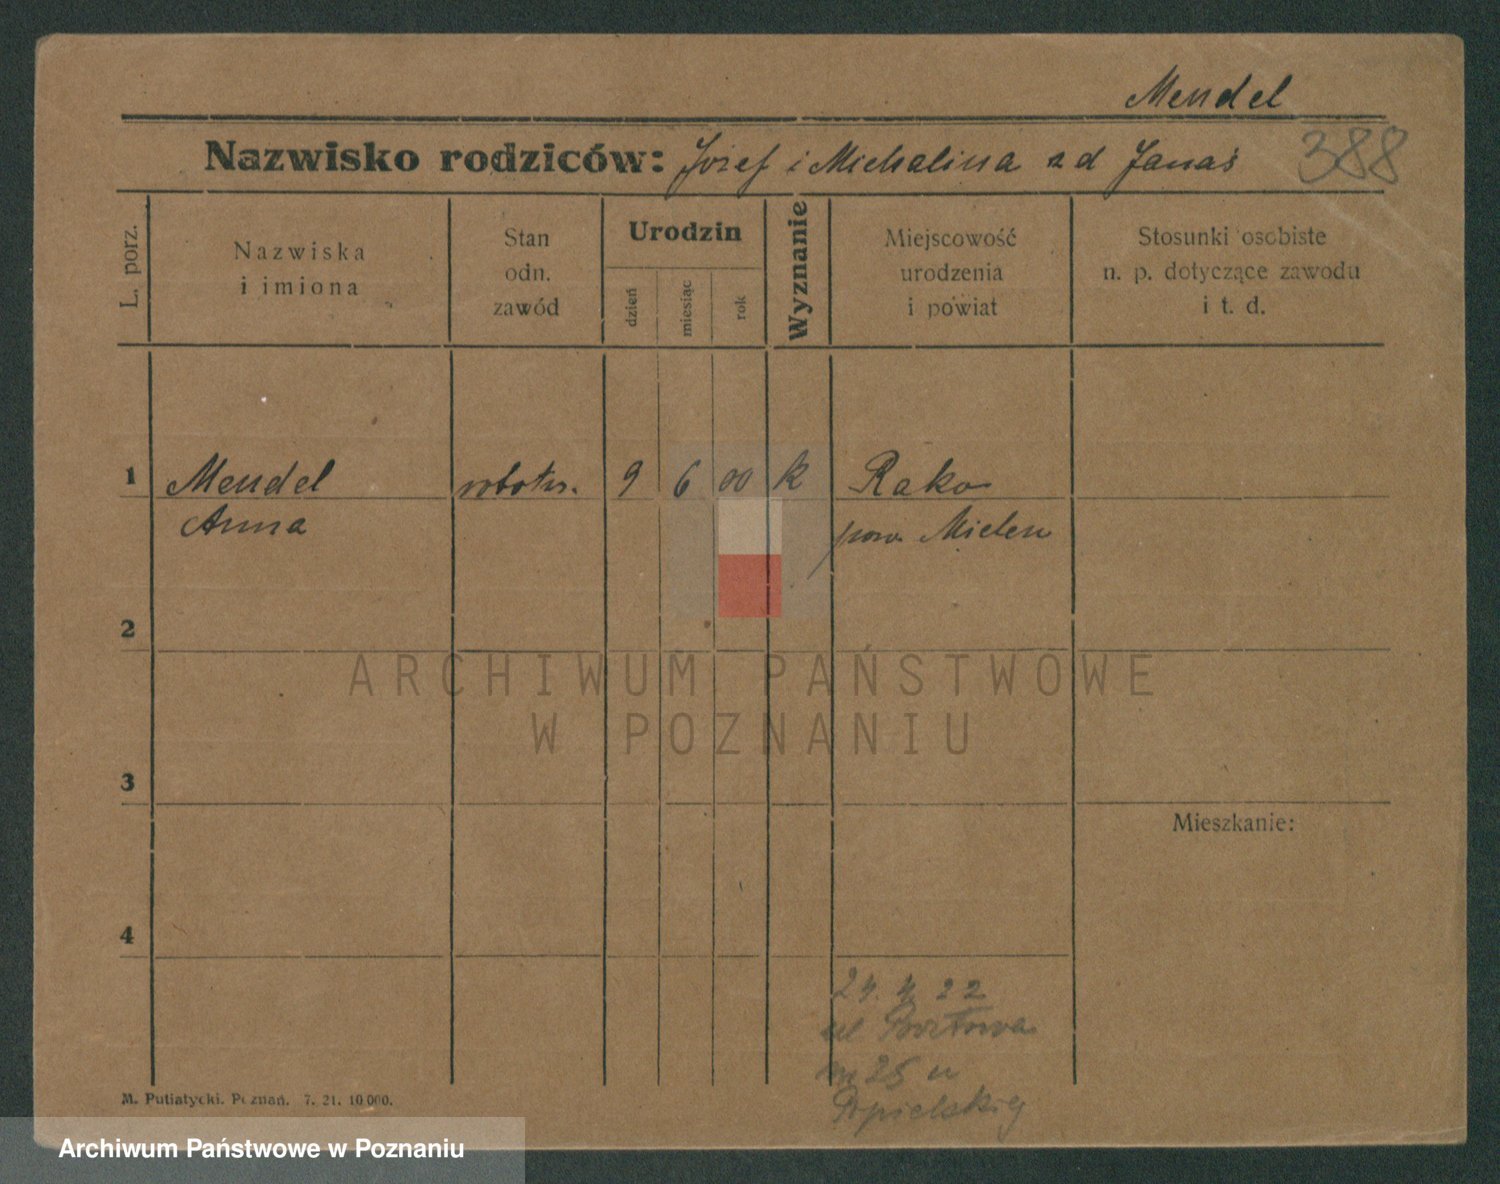 Mendel
Nazwisko rodziców: Józef i Michalina z d Janas
388
L. porz.
Nazwiska
i imiona
Stan
odn.
zawód
Urodzin
dzień
miesiąc
rok
Wyznanie
Miejscowość
urodzenia
i powiat
Stosunki osobiste
n. p. dotyczące zawodu
i t. d.
1 Mendel robotn. 9 6 00 k Rako
Anna pow. Mielen
2
3
Mieszkanie:
4
24. 4 22
ul
25 u
Popielskiej
M. Putiatycki. Poznań. 7. 21. 10 000.
ARCHIWUM PAŃSTWOWE
W POZNANIU
Archiwum Państwowe w Poznaniu